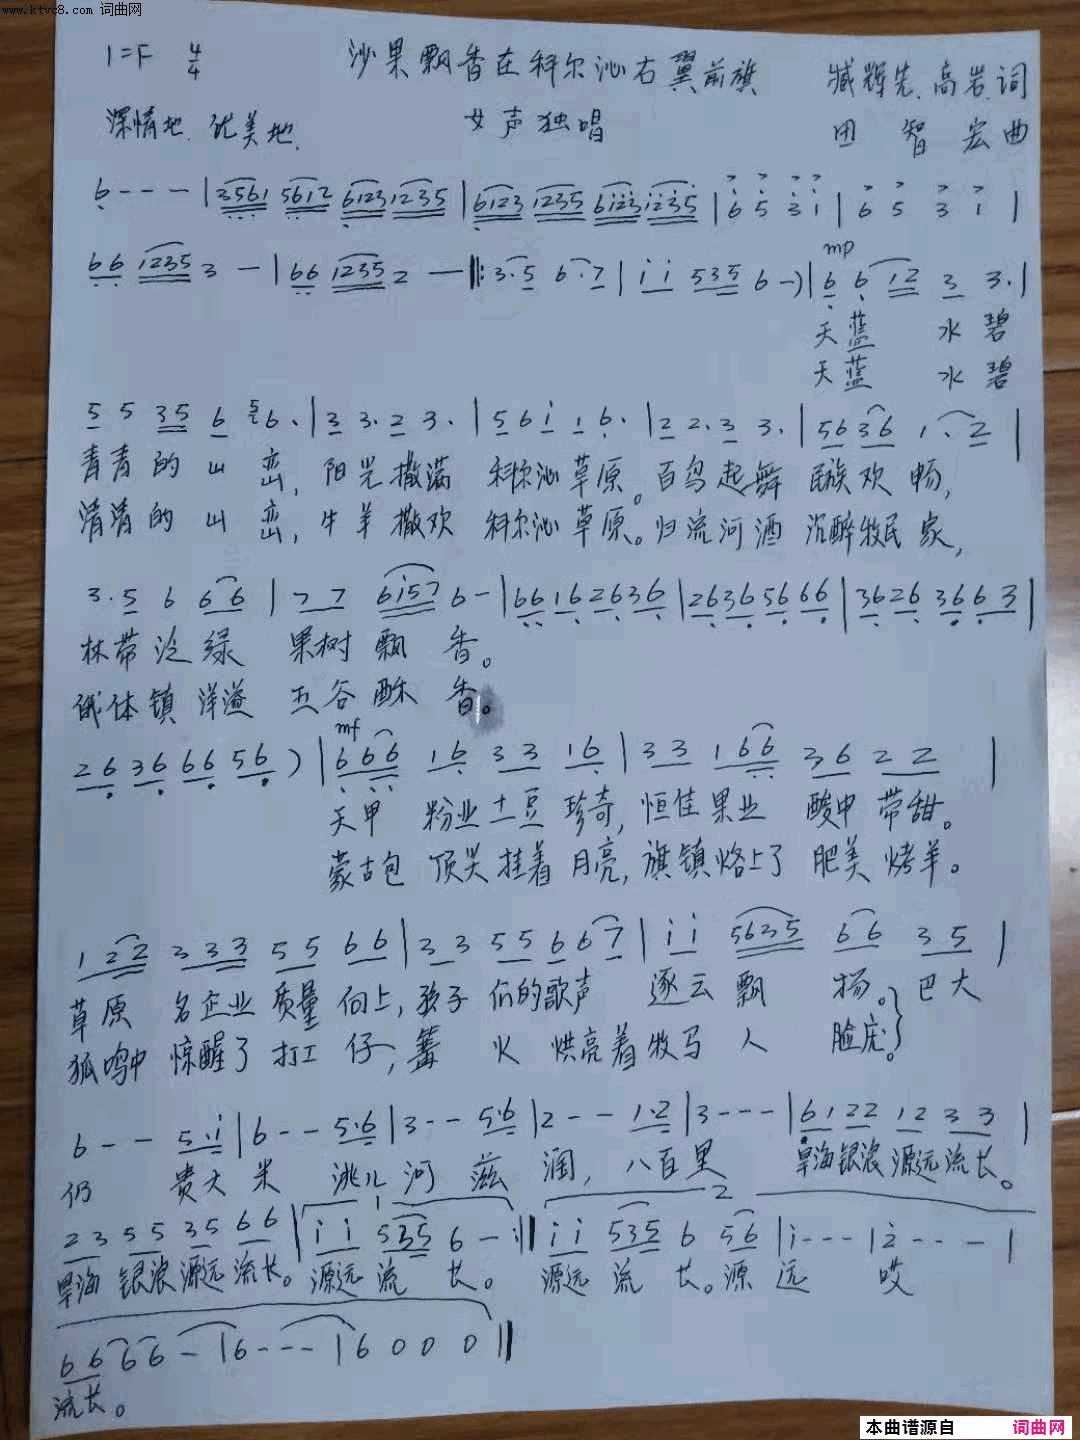 www.ktvc8.com 词曲网
1=F 4/4 沙果飘香在科尔沁右翼前旗 臧辉先、高岩词
深情地、优美地、 女声独唱 田智宏曲
6 - - - | 3561 5612 6123 1235 | 6123 1235 6123 1235 | 6 5 3 1 | 6 5 3 1 |
66 1235 3 - | 66 1235 2 - ‖: 3·5 6·7 | i i 535 6 -) | 6 6 12 3 3· |
mp
天蓝 水碧
天蓝 水碧
5 5 35 6 5 6· | 3 3·2 3· | 5 6 i 1 6· | 2 2·3 3· | 56 36 1·2 |
青青的山峦,阳光撒满 科尔沁草原。百鸟起舞 民族欢畅,
清清的山峦,牛羊撒欢 科尔沁草原。归流河酒 沉醉牧民家,
3·5 6 66 | 77 6i57 6 - | 66 16 26 36 | 26 36 56 66 | 36 26 36 6 3 |
林带泛绿 果树飘香。
俄体镇洋溢 五谷酥香。
26 36 66 56 ) | 666 16 33 16 | 33 166 36 22 |
mf
天甲 粉业土豆珍奇,恒佳果业 酸中带甜。
蒙古包 顶尖挂着月亮,旗镇烙上了肥美烤羊。
122 333 55 66 | 33 55 6 67 | ii 5635 66 35 |
草原 名企业质量向上,孩子们的歌声 逐云飘 扬。}巴大
狐鸣中 惊醒了打工仔,篝 火 烘亮着牧马人 脸庞。
6 - - 5·i | 6 - - 5·6 | 3 - - 5·6 | 2 - - 1·2 | 3 - - - | 6122 12 33 |
仍 贵大米 洮儿河滋润,八百里 旱海银浪源远流长。
23 55 35 66 | 1 i i 535 6 - :‖ 2 i i 535 6 56 | i - - - | 2 - - - |
旱海银浪源远流长。源远流 长。 源远流 长。源远 哎
66 66 - | 6 - - - | 6 0 0 0 ‖
流长。
本曲谱源自 词曲网